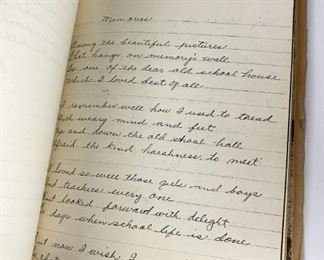 Memories
Among the beautiful pictures
That hangs on memory's wall
Is one of the dear old school house
Which I loved best of all
I remember well how I used to tread
With weary mind and feet
Up and down the old shool hall
Afraid, the kind harshness, to meet
I loved so well those girls and boys
And teachers every one
But looked forward with delight
To days when school life is done
But now I wish I